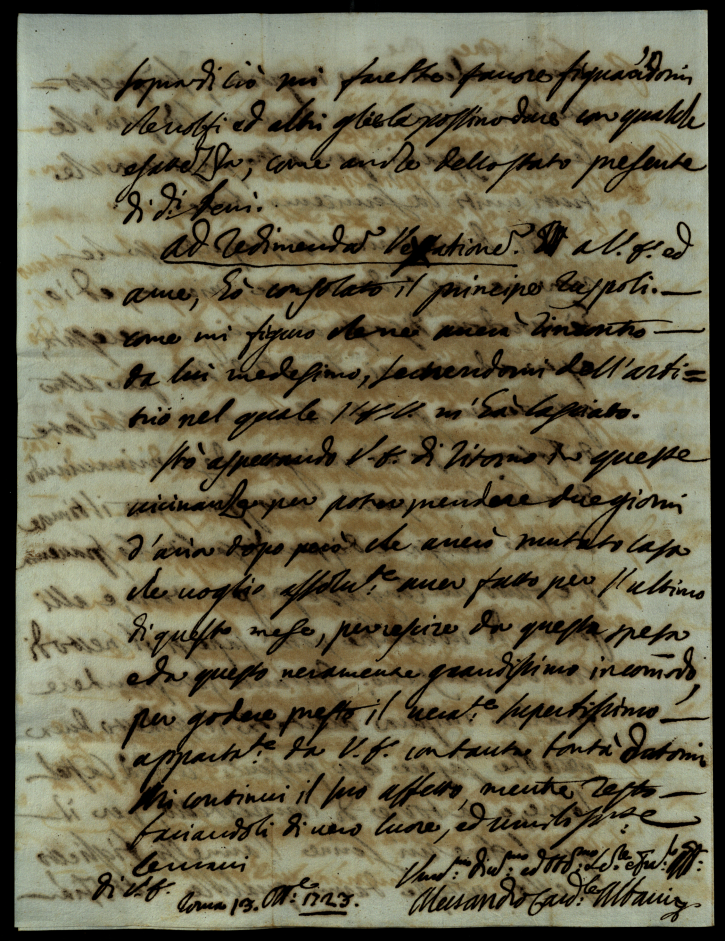 sopra di ciò mi farebbe favore signa
che volti ed altri gliela possino dare con qualche
esattezza, come anche dello stato presente
di d.i beni.
ad redimendā vexationē. a V. E. ed
a me, hò consolato il principe Ruspoli.
come mi figuro che ne averà rincontro
da lui medesimo, servendomi dell'arbi=
trio nel quale l'E. V. m'hà lasciato.
Stò aspettando V. E. di ritorno da queste
vicinanze per poter prendere due giorni
d'aria dopo però che averò mutato casa
che voglio assolut.e aver fatto per l'ultimo
di questo mese, per uscire da questa spesa
e da questo veramente grandissimo incōmodo,
per godere presto il verat.e superbissimo
appartat.e da V. E. con tanta bontà datomi
Mi continui il suo affetto, mentre resto
baciandoli di vero cuore, ed umilissim.e
le mani
di V. E.
Roma 13. 1723.
Um.mo ed Obb.mo
Alessandro Card.le Albani